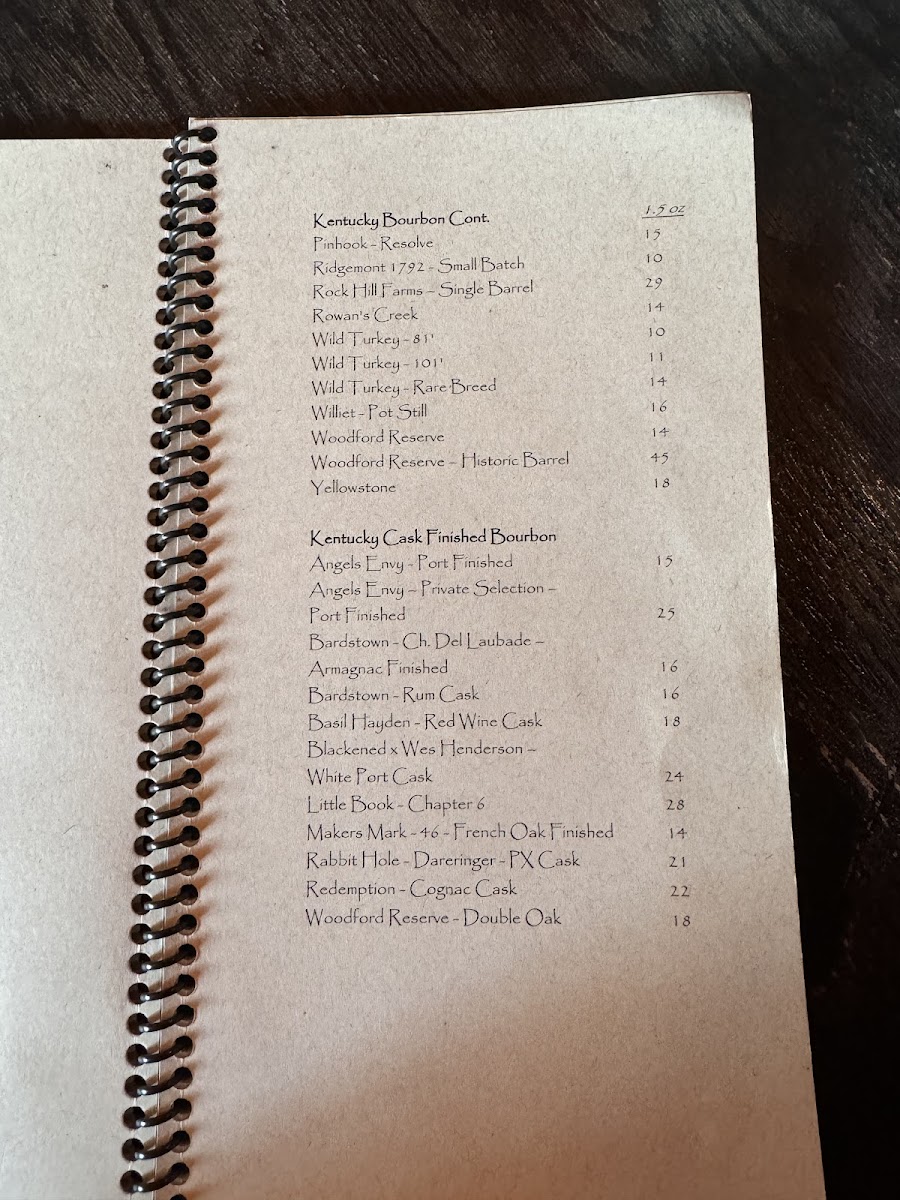 Kentucky Bourbon Cont. 1.5 oz
Pinhook - Resolve 15
Ridgemont 1792 - Small Batch 10
Rock Hill Farms – Single Barrel 29
Rowan's Creek 14
Wild Turkey - 81' 10
Wild Turkey - 101' 11
Wild Turkey - Rare Breed 14
Williet - Pot Still 16
Woodford Reserve 14
Woodford Reserve – Historic Barrel 45
Yellowstone 18
Kentucky Cask Finished Bourbon
Angels Envy - Port Finished 15
Angels Envy – Private Selection –
Port Finished 25
Bardstown - Ch. Del Laubade –
Armagnac Finished 16
Bardstown - Rum Cask 16
Basil Hayden - Red Wine Cask 18
Blackened x Wes Henderson –
White Port Cask 24
Little Book - Chapter 6 28
Makers Mark - 46 - French Oak Finished 14
Rabbit Hole - Dareringer - PX Cask 21
Redemption - Cognac Cask 22
Woodford Reserve - Double Oak 18